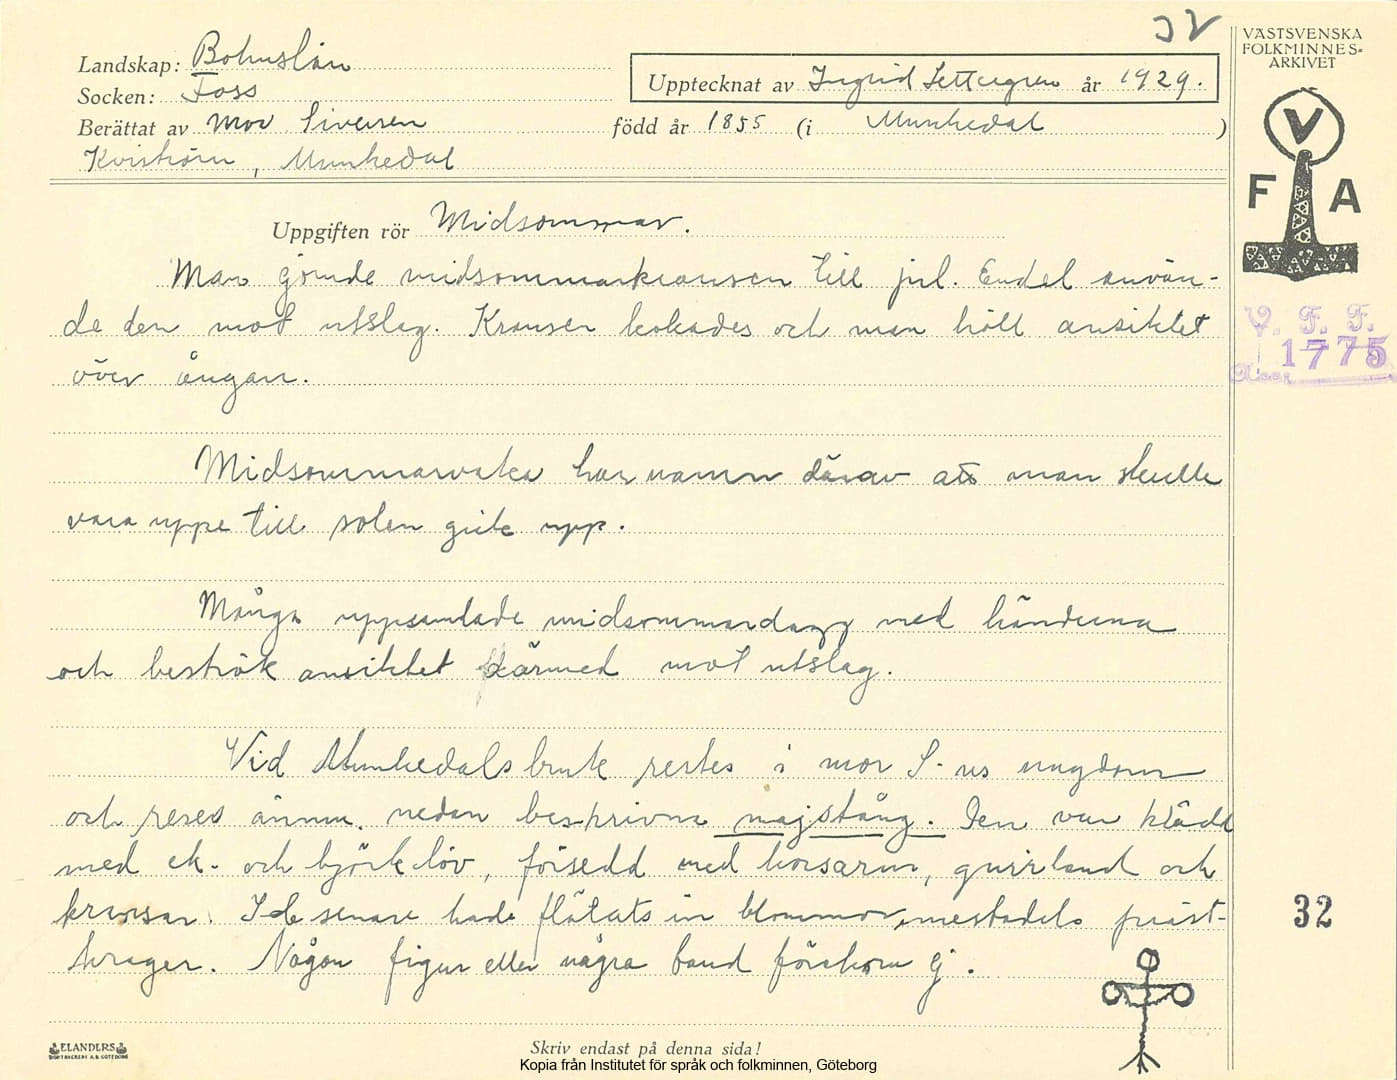 IV
VÄSTSVENSKA
FOLKMINNES=
ARKIVET
Landskap: Bohuslän
Socken: Foss
Upptecknat av Ingrid Settergren år 1929.
Berättat av Mor Siversen född år 1855 (i Munkedal )
Kviström, Munkedal
V
F A
Uppgiften rör Midsommar.
Man gömde midsommarkransen till jul. Endel använ-
de den mot utslag. Kransen kokades och man höll ansiktet
över ångan.
V. F. F.
1775
Midsommarvaka har namn därav att man skulle
vara uppe till solen gick upp.
Många uppsamlade midsommardagg med händerna
och beströk ansiktet därmed mot utslag.
Vid Munkedals bruk restes i mor S-ns ungdom
och reses ännu nedan beskrivna majstång. Den var klädd
med ek- och björklöv, försedd med korsarm, guirland och
kransar. I de senare hade flätats in blommor, mestadels präst-
kragar. Någon figur eller några band förekom ej.
32
ELANDERS
BOKTRYCKERI A.B. GÖTEBORG
Skriv endast på denna sida!
Kopia från Institutet för språk och folkminnen, Göteborg